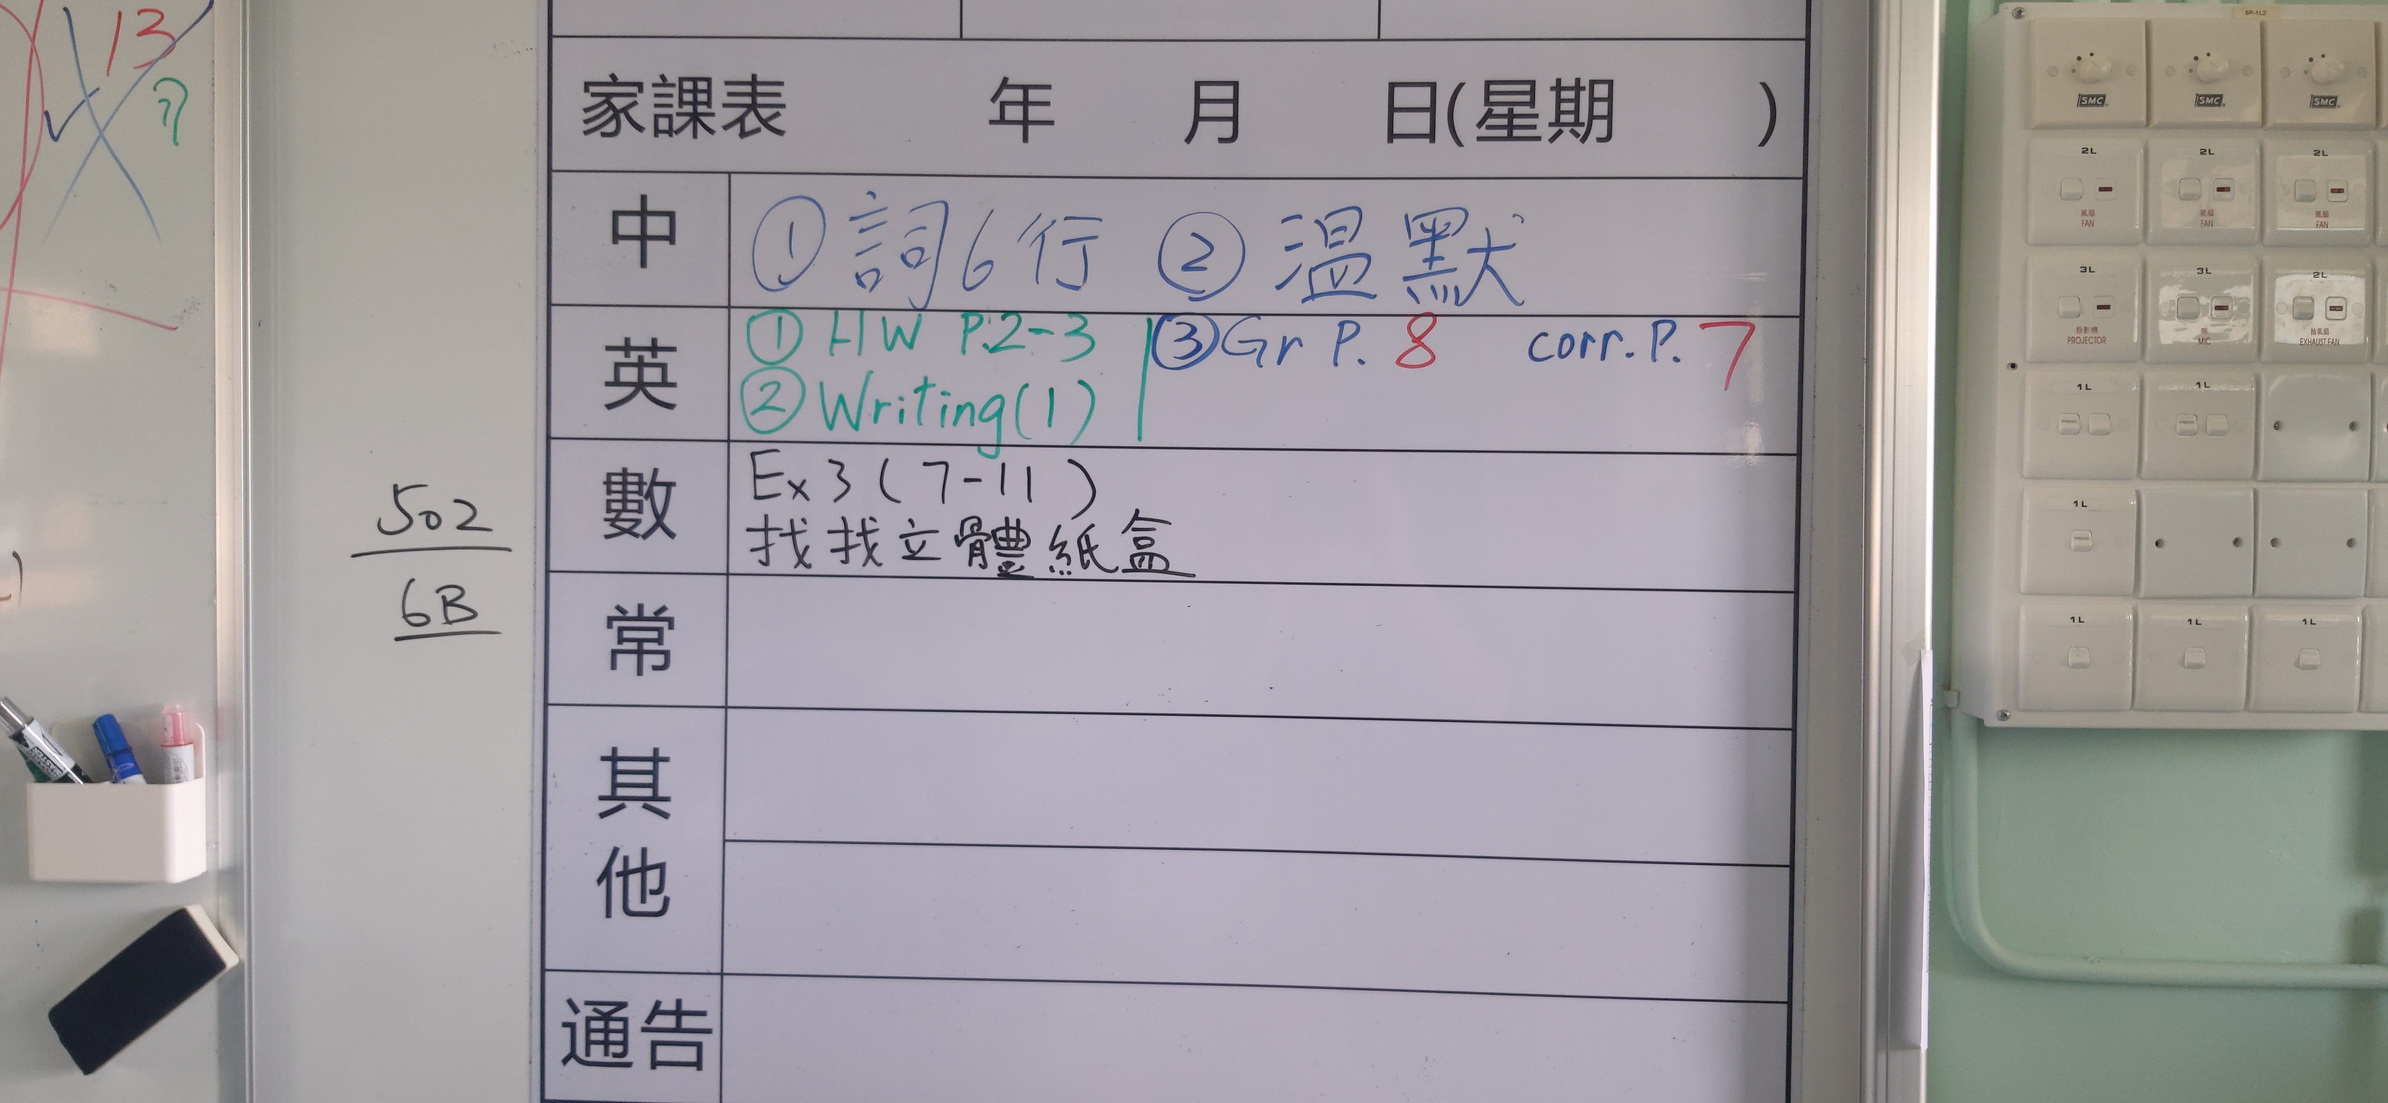 13
家課表 年 月 日(星期 )
中 ①詞6行 ②溫默
英 ①HW P.2-3 ③Gr P. 8 corr. P. 7
②Writing(1)
數 Ex 3 ( 7-11 )
找找立體紙盒
常
其他
通告
502
6B
SMC SMC SMC
2L 2L 2L
風扇 風扇 風扇
FAN FAN FAN
3L 3L 2L
投影機 咪 抽氣扇
PROJECTOR MIC EXHAUST FAN
1L 1L
1L
1L 1L 1L